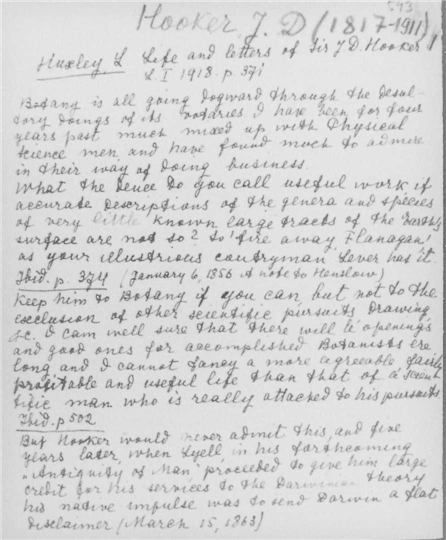 593
Hooker J. D (1817-1911)
Huxley L Life and letters of Sir J D. Hooker
L. I 1918. p. 371
Botany is all going dogward through the desul-
tory doings of its votaries I have been for four
years past much mixed up with Physical
Science men and have found much to admire
in their way of doing business.
What the deuce do you call useful work if
accurate descriptions of the genera and species
of very little known large tracts of the Earth's
surface are not so? So 'fire away Flanagan'
as your illustrious countryman Lever has it
Ibid. p. 374 (January 6, 1856 A note to Henslow)
Keep him to Botany if you can, but not to the
exclusion of other scientific pursuits, Drawing
&c. I cam well sure that there will be openings
and good ones for accomplished Botanists ere
long and I cannot fancy a more agreeable fairly
profitable and useful life than that of a scien
tific man who is really attached to his pursuits
Ibid. p 502
But Hooker would never admit this, and five
years later when Lyell in his forthcoming
"Antiquity of Man" proceeded to give him large
credit for his services to the Darwinian theory
his native impulse was to send Darwin a flat
disclaimer (March 15, 1863)